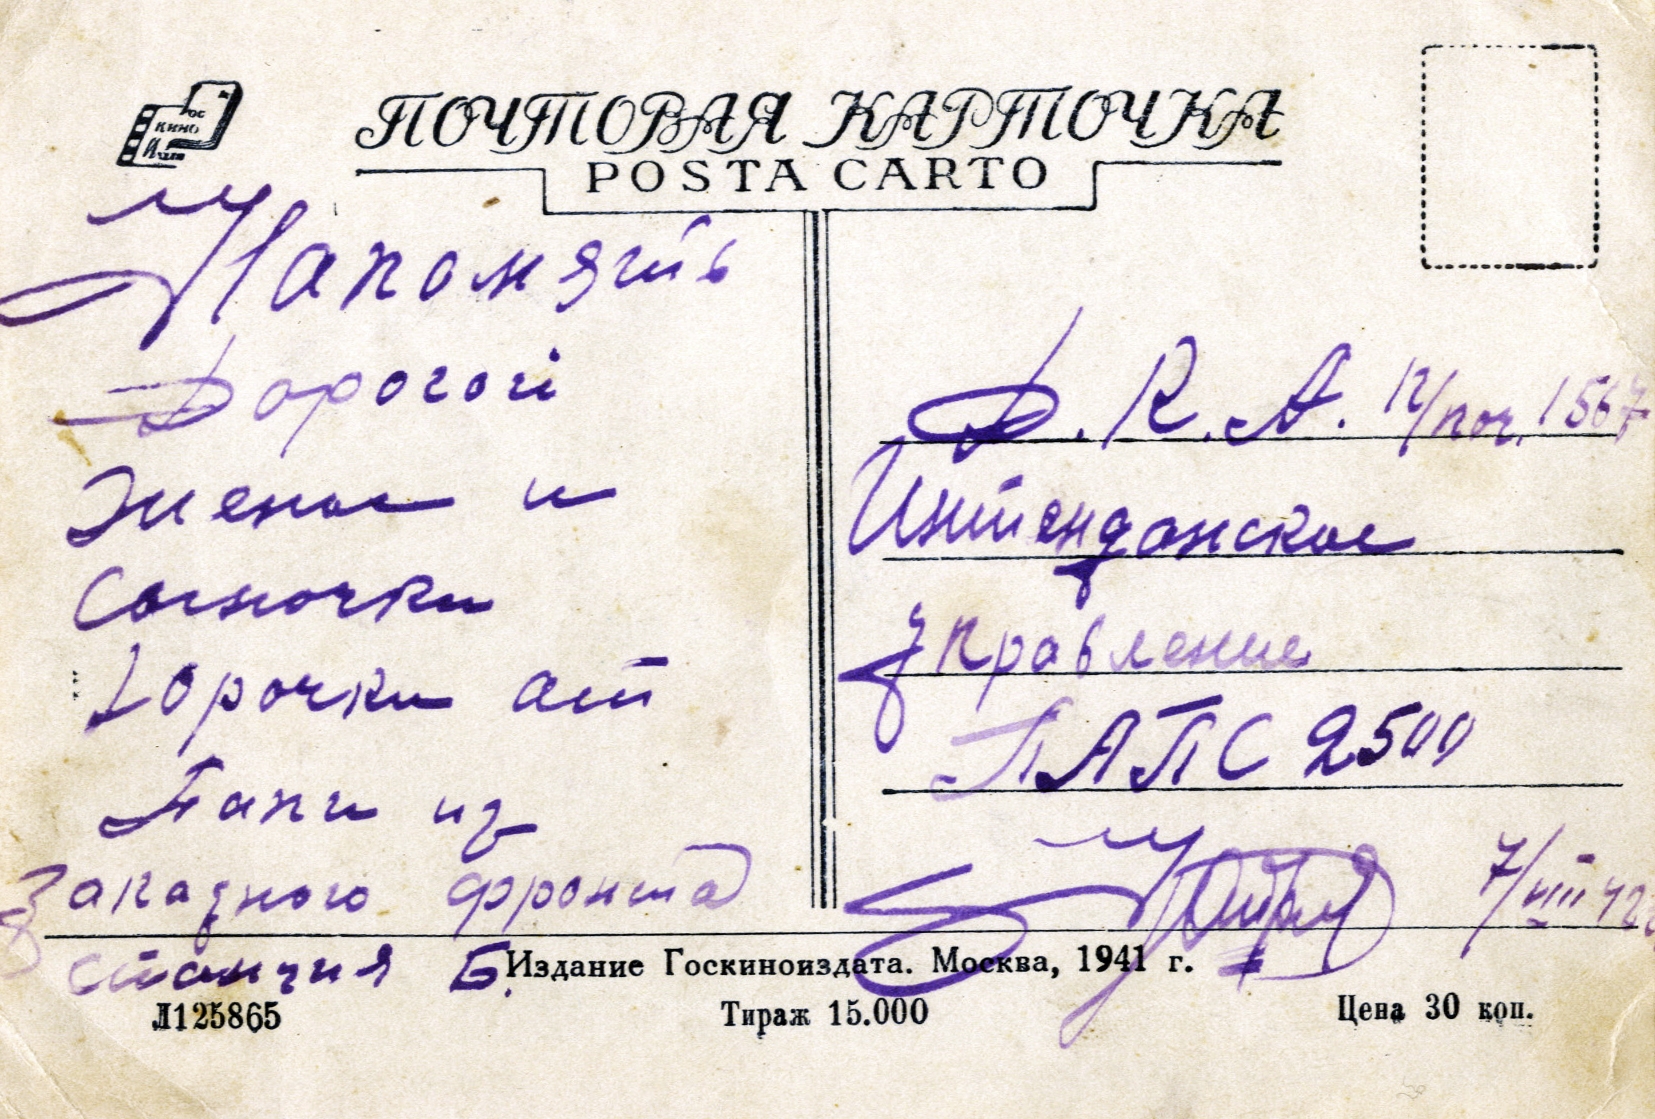 Гос
кино
Изд
ПОЧТОВАЯ КАРТОЧКА
POSTA CARTO
На помять
Дорогой
Жены и
Сыночки
Юрочки от
Папи из
Западного фронта
станция Б.
Д.К.А. п/поч. 1567
Интенданское
управление
ПАПС 2500
7/VIII 42г
Издание Госкиноиздата. Москва, 1941 г.
Л125865
Тираж 15.000
Цена 30 коп.